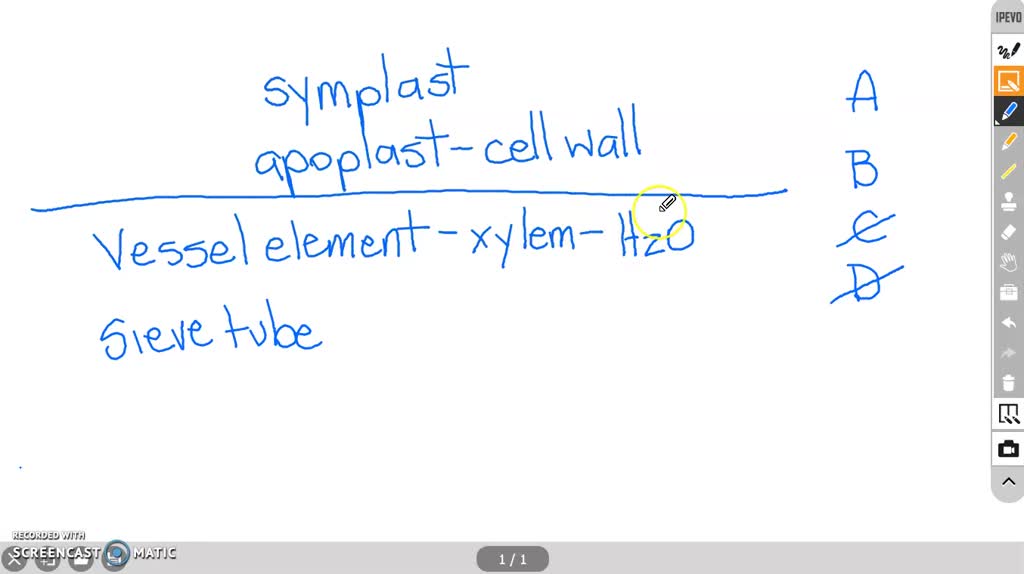 IPEVO
symplast
A
apoplast - cell wall
B
Vessel element - xylem - H2O
C
D
Sieve tube
RECORDED WITH
SCREENCAST MATIC
1 / 1